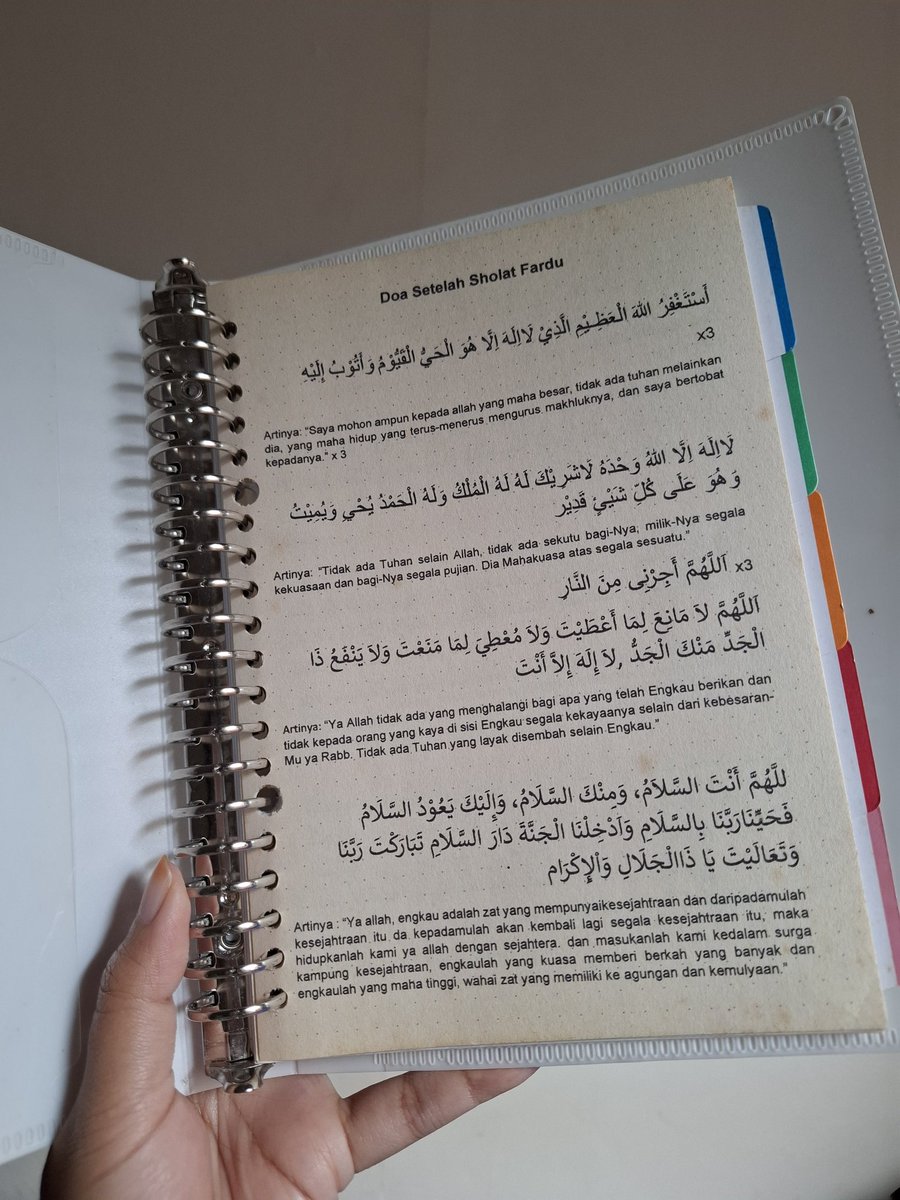 Doa Setelah Sholat Fardu
أَسْتَغْفِرُ اللهَ الْعَظِيْمِ الَّذِيْ لَااِلَهَ اِلَّا هُوَ الْحَيُّ الْقَيُّوْمُ وَأَتُوْبُ إِلَيْهِ
x3
Artinya: "Saya mohon ampun kepada allah yang maha besar, tidak ada tuhan melainkan
dia, yang maha hidup yang terus-menerus mengurus makhluknya, dan saya bertobat
kepadanya." x 3
لَااِلَهَ اِلَّا اللهُ وَحْدَهُ لَاشَرِيْكَ لَهُ لَهُ الْمُلْكُ وَلَهُ الْحَمْدُ يُحْيِ وَيُمِيْتُ
وَهُوَ عَلَى كُلِّ شَيْئٍ قَدِيْر
Artinya: "Tidak ada Tuhan selain Allah, tidak ada sekutu bagi-Nya, milik-Nya segala
kekuasaan dan bagi-Nya segala pujian. Dia Mahakuasa atas segala sesuatu."
x3 اَللَّهُمَّ أَجِرْنِى مِنَ النَّارِ
اَللَّهُمَّ لاَ مَانِعَ لِمَا أَعْطَيْتَ وَلاَ مُعْطِيَ لِمَا مَنَعْتَ وَلاَ يَنْفَعُ ذَا
الْجَدِّ مَنْكَ الْجَدُّ ,لاَ إِلَهَ إِلاَّ أَنْتَ
Artinya: "Ya Allah tidak ada yang menghalangi bagi apa yang telah Engkau berikan dan
tidak kepada orang yang kaya di sisi Engkau segala kekayaanya selain dari kebesaran-
Mu ya Rabb. Tidak ada Tuhan yang layak disembah selain Engkau."
للَّهُمَّ أَنْتَ السَّلاَمُ، وَمِنْكَ السَّلَامُ، وَإِلَيْكَ يَعُوْدُ السَّلَامُ
فَحَيِّنَارَبَّنَا بِالسَّلَامِ وَاَدْخِلْنَا الْجَنَّةَ دَارَ السَّلَامِ تَبَارَكْتَ رَبَّنَا
وَتَعَالَيْتَ يَا ذَاالْجَلَالِ وَاْلإِكْرَام
Artinya : "Ya allah, engkau adalah zat yang mempunyaikesejahtraan dan daripadamulah
kesejahtraan itu da kepadamulah akan kembali lagi segala kesejahtraan itu, maka
hidupkanlah kami ya allah dengan sejahtera. dan masukanlah kami kedalam surga
kampung kesejahtraan, engkaulah yang kuasa memberi berkah yang banyak dan
engkaulah yang maha tinggi, wahai zat yang memiliki ke agungan dan kemulyaan."